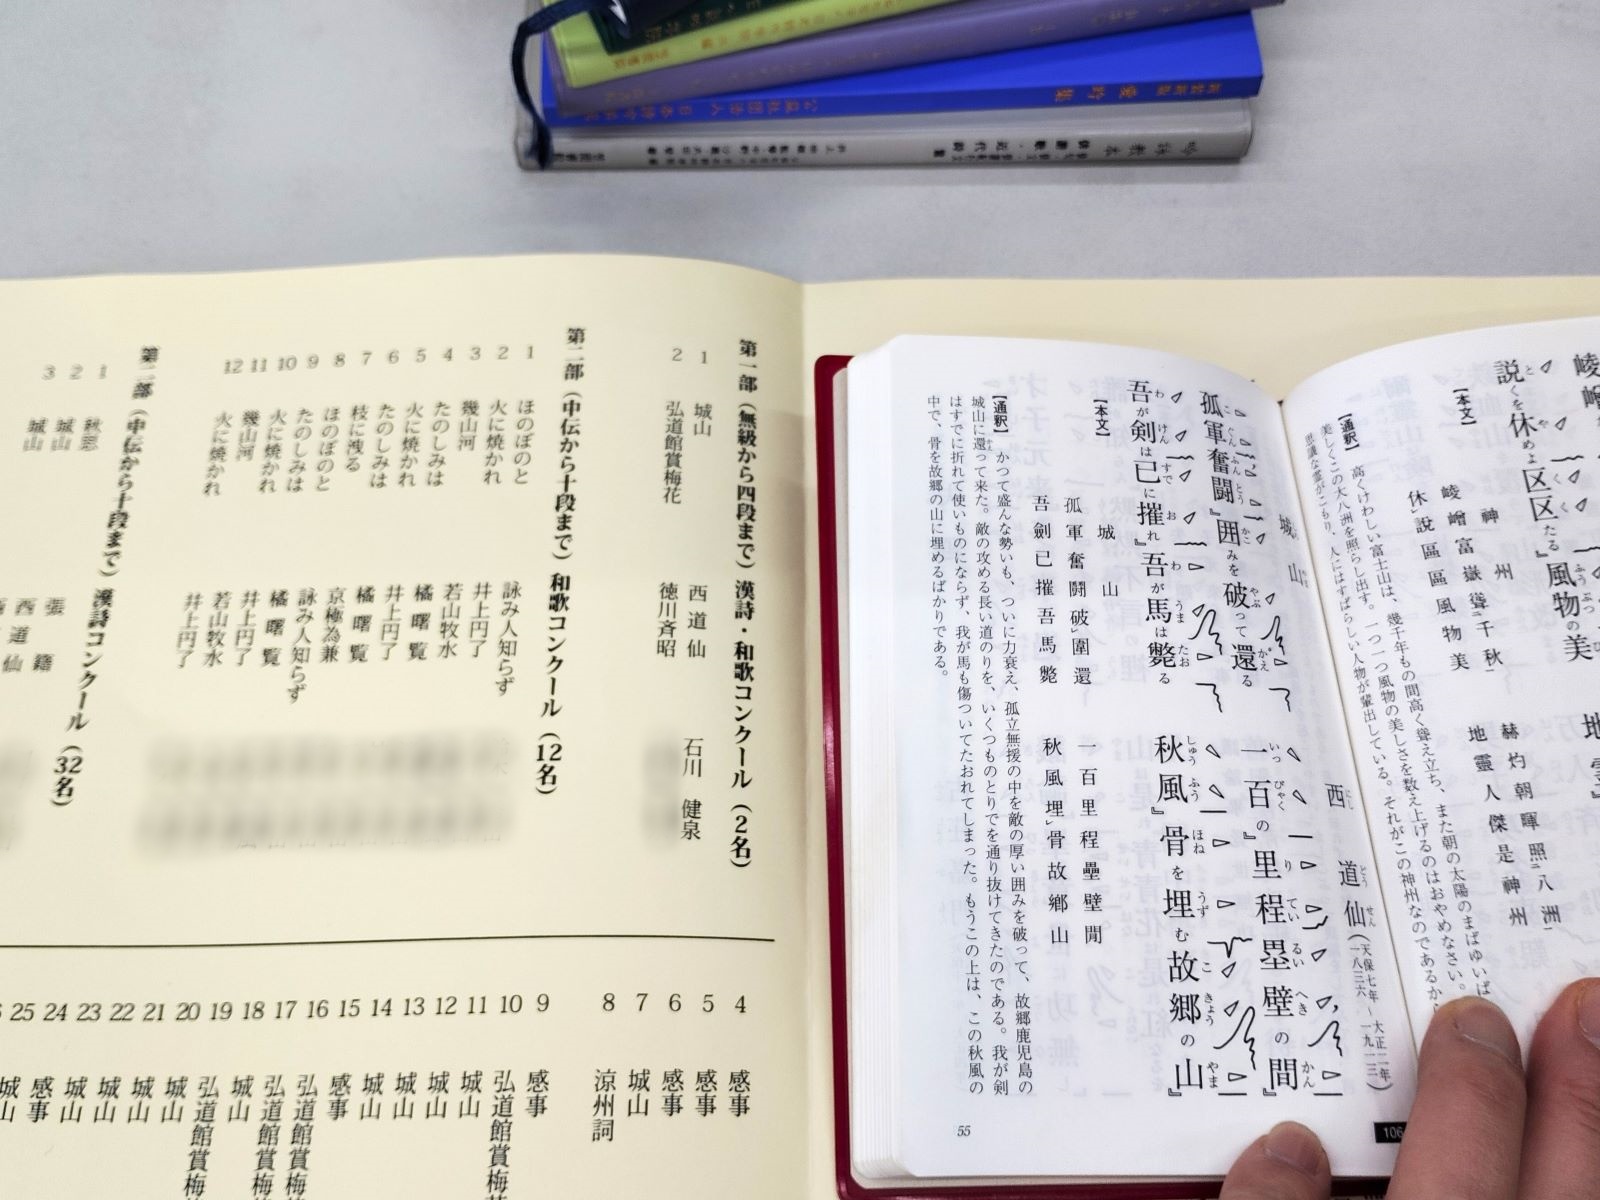 愛吟集
吟詠教本
第一部（無級から四段まで）漢詩・和歌コンクール（2名）
1 城山 西道仙 石川 健泉
2 弘道館賞梅花 徳川斉昭
第二部（中伝から十段まで）和歌コンクール（12名）
1 ほのぼのと 詠み人知らず
2 火に焼かれ 井上円了
3 幾山河 若山牧水
4 たのしみは 橘曙覧
5 火に焼かれ 井上円了
6 たのしみは 橘曙覧
7 枝に洩る 京極為兼
8 ほのぼのと 詠み人知らず
9 たのしみは 橘曙覧
10 火に焼かれ 井上円了
11 幾山河 若山牧水
12 火に焼かれ 井上円了
第二部（中伝から十段まで）漢詩コンクール（32名）
1 秋思 張籍
2 城山 西道仙
3 城山
4 感事
5 城山
6 感事
7 城山
8 涼州詞
9 感事
10 弘道館賞梅花
11 城山
12 城山
13 城山
14 城山
15 感事
16 弘道館賞梅
17 弘道館賞梅
18 城山
19 弘道館賞梅
20 城山
21 城山
22 城山
23 城山
24 感事
25 城山
説くを休めよ区区たる』風物の美
【本文】
神州
崚嶒富嶽聳千秋 赫灼朝暉照八洲
休説區區風物美 地靈人傑是神州
【通釈】 高くけわしい富士山は、幾千年もの間高く聳え立ち、また朝の太陽のまばゆいば
美しくこの大八洲を照らし出す。一つ一つ風物の美しさを数え上げるのはおやめなさい。
思議な霊がこもり、人にはすばらしい人物が輩出している。それがこの神州なのであるから
城山 西道仙（天保七年〜大正二年 一八三六〜一九一三）
孤軍奮闘』囲みを破って還る 一百の』里程塁壁の間』
吾が剣は已に摧れ』吾が馬は斃る 秋風』骨を埋む故郷の山』
【本文】
城山
孤軍奮闘破圍還 一百里程壘壁閒
吾劍已摧吾馬斃 秋風埋骨故鄕山
【通釈】 かつて盛んな勢いも、ついに力衰え、孤立無援の中を敵の厚い囲みを破って、故郷鹿児島の
城山に還って来た。敵の攻める長い道のりを、いくつものとりでを通り抜けてきたのである。我が剣
はすでに折れて使いものにならず、我が馬も傷ついてたおれてしまった。もうこの上は、この秋風の
中で、骨を故郷の山に埋めるばかりである。
55
106